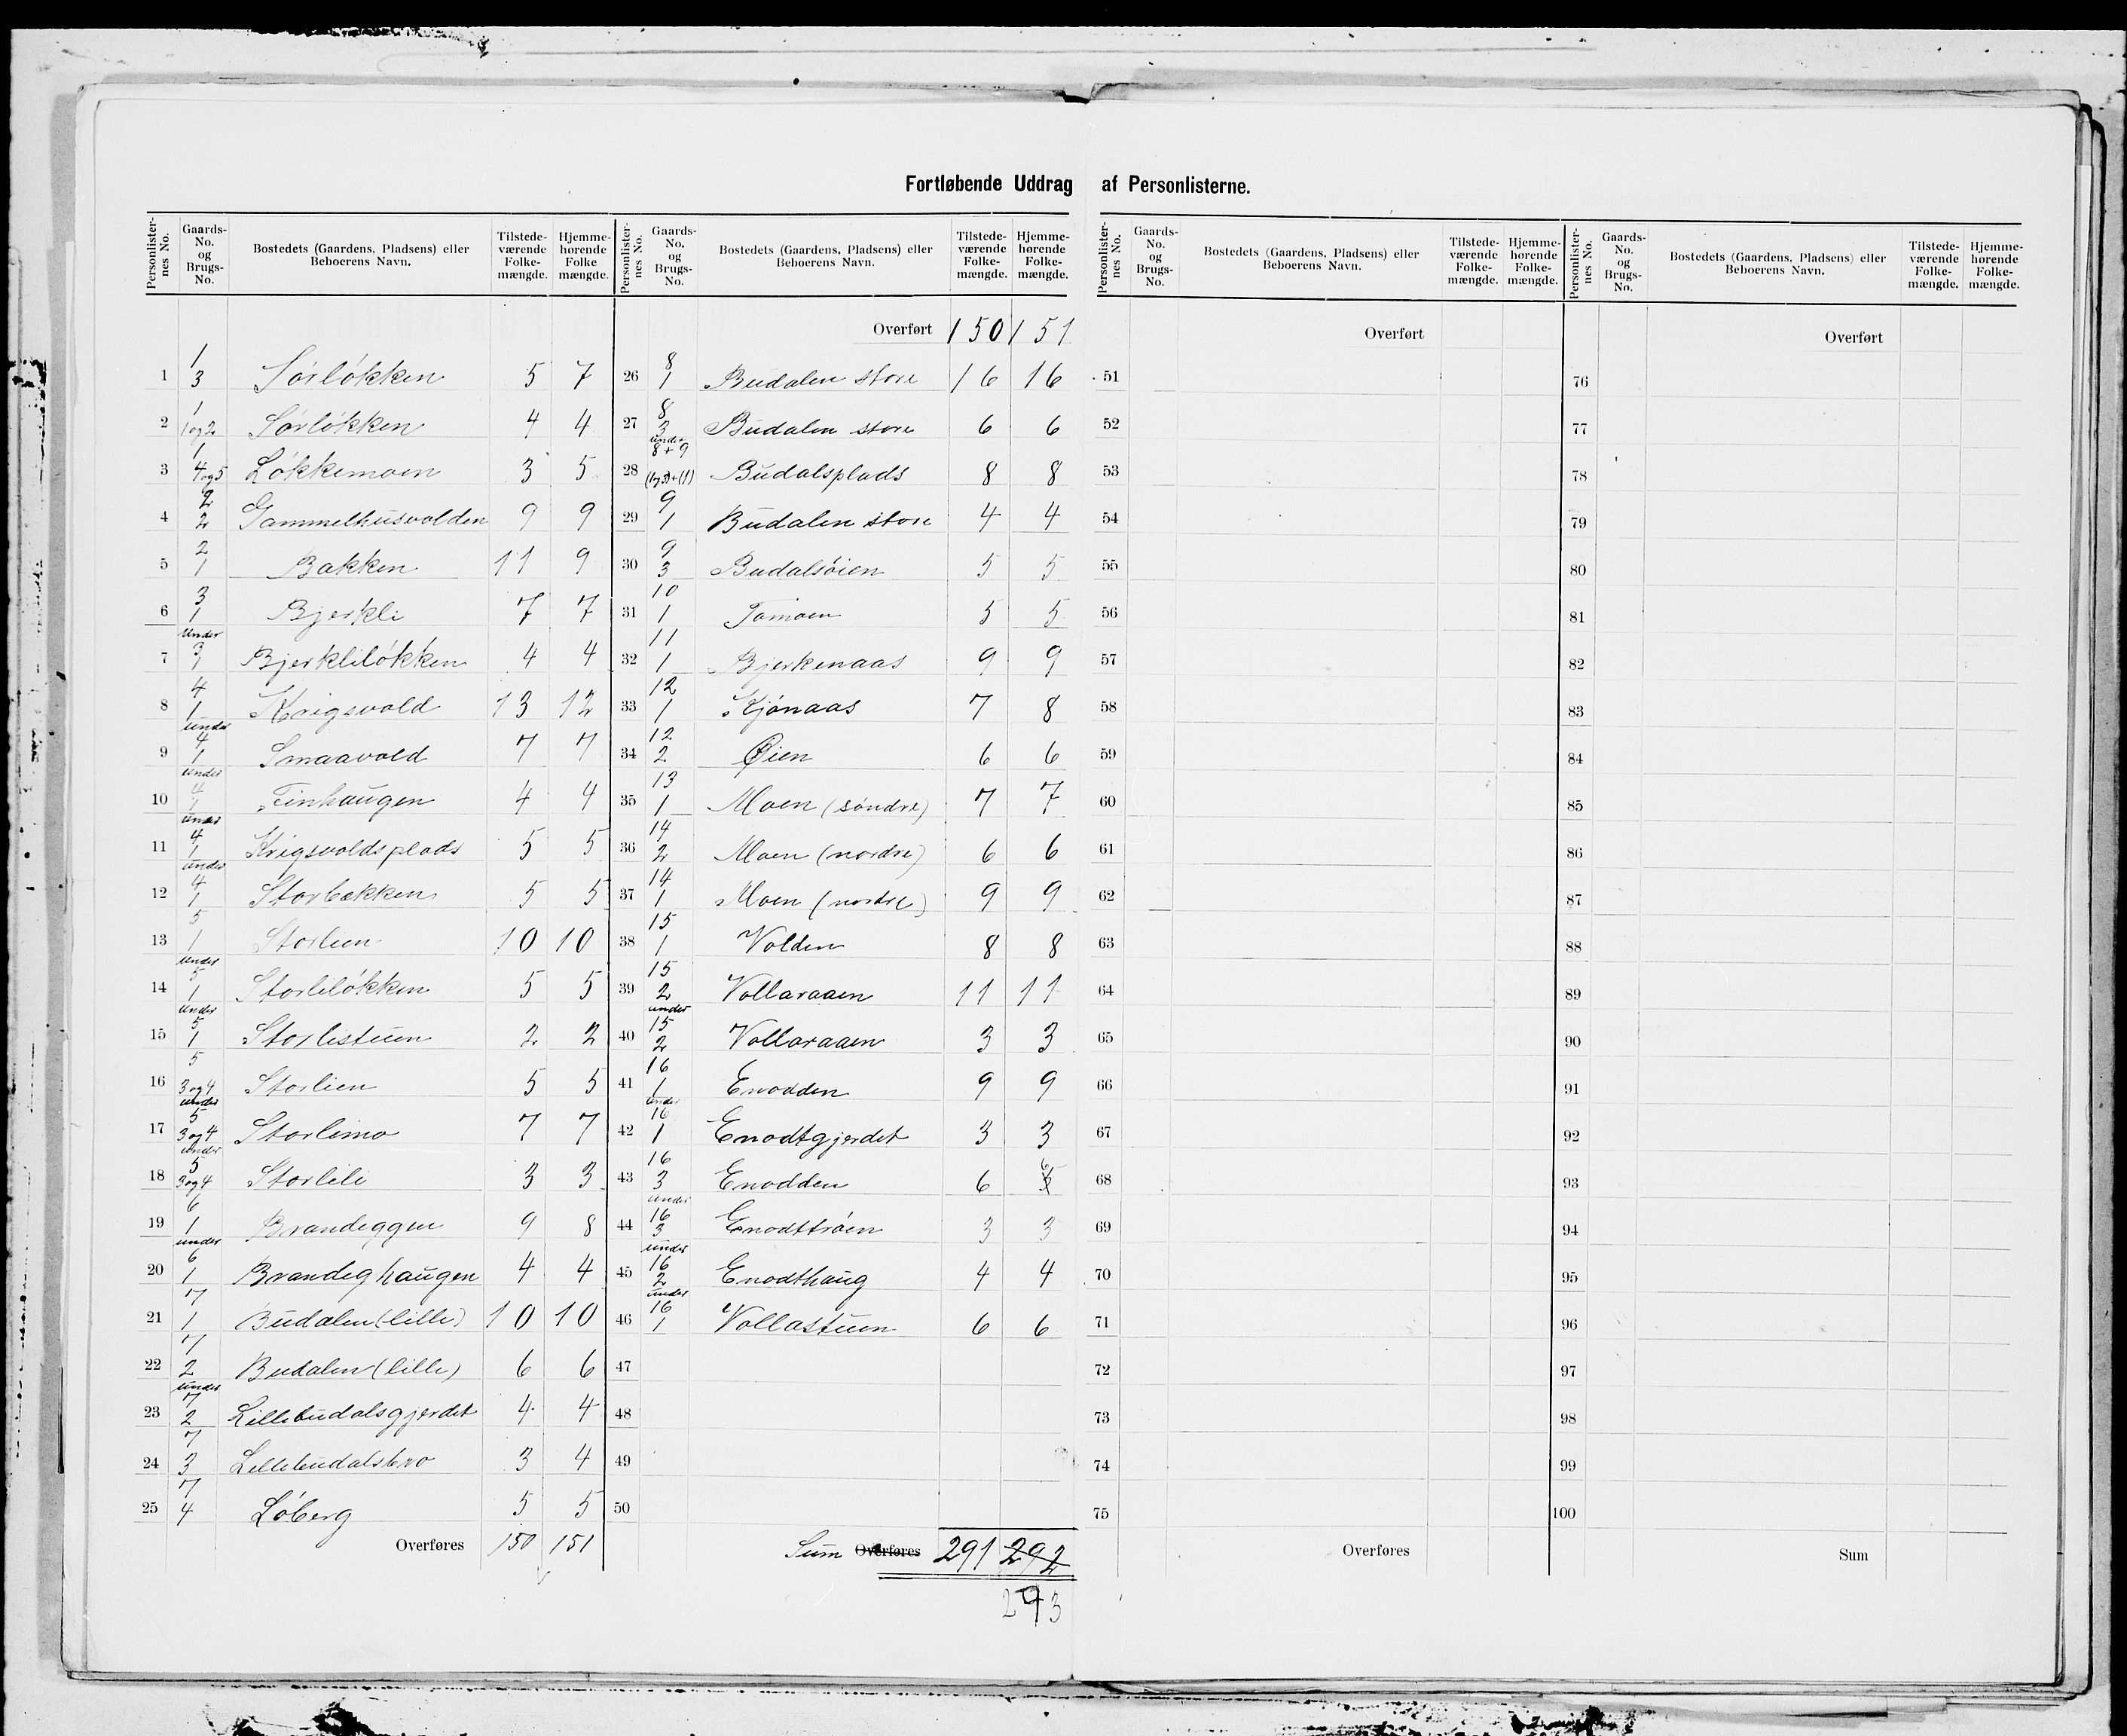 Fortløbende Uddrag af Personlisterne.
Personlister-nes No. | Gaards-No. og Brugs-No. | Bostedets (Gaardens, Pladsens) eller Beboerens Navn. | Tilstede-værende Folke-mængde. | Hjemme-hørende Folke mængde.
1 | 1 3 | Sørløkken | 5 | 7
2 | 1 1og2 | Sørløkken | 4 | 4
3 | 1 4og5 | Løkkemoen | 3 | 5
4 | 2 2 | Gammelhusvolden | 9 | 9
5 | 2 1 | Bakken | 11 | 9
6 | 3 1 | Bjerkli | 7 | 7
7 | under 3 1 | Bjerkliløkken | 4 | 4
8 | 4 1 | Krigsvold | 13 | 12
9 | under 4 1 | Smaavold | 7 | 7
10 | under 4 1 | Finhaugen | 4 | 4
11 | under 4 1 | Krigsvoldsplads | 5 | 5
12 | under 4 1 | Storbækken | 5 | 5
13 | 5 1 | Storlien | 10 | 10
14 | under 5 1 | Storliløkken | 5 | 5
15 | under 5 1 | Storlistuen | 2 | 2
16 | 5 3og4 | Storlien | 5 | 5
17 | under 5 3og4 | Storlimo | 7 | 7
18 | under 5 3og4 | Storlili | 3 | 3
19 | 6 1 | Brandeggen | 9 | 8
20 | under 6 1 | Brandeghaugen | 4 | 4
21 | 7 1 | Budalen (lille) | 10 | 10
22 | 7 2 | Budalen (lille) | 6 | 6
23 | under 7 2 | Lillebudalsgjerdet | 4 | 4
24 | 7 3 | Lillebudalsbro | 3 | 4
25 | 7 4 | Løberg | 5 | 5
Overføres | 150 | 151
Personlister-nes No. | Gaards-No. og Brugs-No. | Bostedets (Gaardens, Pladsens) eller Beboerens Navn. | Tilstede-værende Folke-mængde. | Hjemme-hørende Folke-mængde.
Overført | 150 | 151
26 | 8 1 | Budalen store | 16 | 16
27 | 8 3 | Budalen store | 6 | 6
28 | under 8+9 (1og3)+(1) | Budalsplads | 8 | 8
29 | 9 1 | Budalen store | 4 | 4
30 | 9 3 | Budalsøien | 5 | 5
31 | 10 1 | Tomoen | 5 | 5
32 | 11 1 | Bjerkenaas | 9 | 9
33 | 12 1 | Kjønaas | 7 | 8
34 | 12 2 | Øien | 6 | 6
35 | 13 1 | Moen (søndre) | 7 | 7
36 | 14 2 | Moen (nordre) | 6 | 6
37 | 14 1 | Moen (nordre) | 9 | 9
38 | 15 1 | Volden | 8 | 8
39 | 15 2 | Vollaraaen | 11 | 11
40 | under 15 2 | Vollaraaen | 3 | 3
41 | 16 1 | Enodden | 9 | 9
42 | under 16 1 | Enodtgjerdet | 3 | 3
43 | 16 3 | Enodden | 6 | 6
44 | under 16 3 | Enodttrøen | 3 | 3
45 | under 16 2 | Enodthaug | 4 | 4
46 | under 16 1 | Vollastuen | 6 | 6
47
48
49
50
Sum Overføres | 291 | 292
293
Personlister-nes No. | Gaards-No. og Brugs-No. | Bostedets (Gaardens, Pladsens) eller Beboerens Navn. | Tilstede-værende Folke-mængde. | Hjemme-hørende Folke-mængde.
Overført
51
52
53
54
55
56
57
58
59
60
61
62
63
64
65
66
67
68
69
70
71
72
73
74
75
Overføres
Personlister-nes No. | Gaards-No. og Brugs-No. | Bostedets (Gaardens, Pladsens) eller Beboerens Navn. | Tilstede-værende Folke-mængde. | Hjemme-hørende Folke-mængde.
Overført
76
77
78
79
80
81
82
83
84
85
86
87
88
89
90
91
92
93
94
95
96
97
98
99
100
Sum